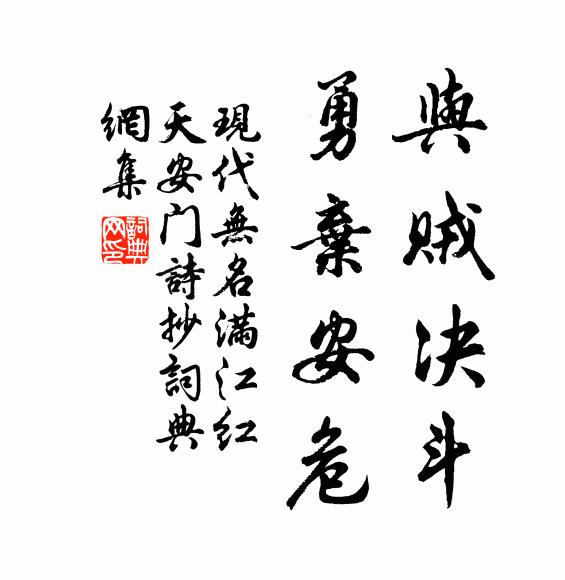 與賊決斗
勇棄安危
現代無名满江红
天安门詩抄詞典
網集
詞典
网印